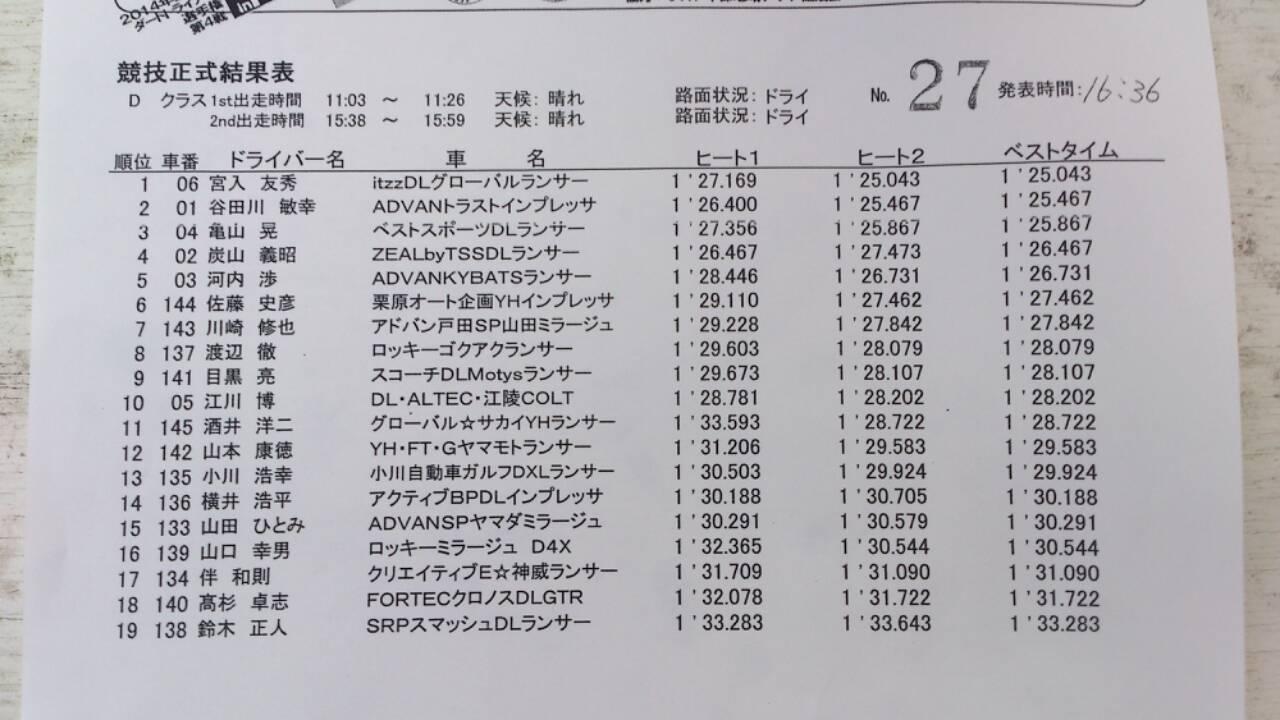 2014年
ダートトライアル
選手権
第4戦
競技正式結果表
No. 27 発表時間:16:36
D クラス 1st出走時間 11:03 ～ 11:26 天候: 晴れ 路面状況: ドライ
2nd出走時間 15:38 ～ 15:59 天候: 晴れ 路面状況: ドライ
順位 車番 ドライバー名 車 名 ヒート1 ヒート2 ベストタイム
1 06 宮入 友秀 itzzDLグローバルランサー 1'27.169 1'25.043 1'25.043
2 01 谷田川 敏幸 ADVANトラストインプレッサ 1'26.400 1'25.467 1'25.467
3 04 亀山 晃 ベストスポーツDLランサー 1'27.356 1'25.867 1'25.867
4 02 炭山 義昭 ZEALbyTSSDLランサー 1'26.467 1'27.473 1'26.467
5 03 河内 渉 ADVANKYBATSランサー 1'28.446 1'26.731 1'26.731
6 144 佐藤 史彦 栗原オート企画YHインプレッサ 1'29.110 1'27.462 1'27.462
7 143 川崎 修也 アドバン戸田SP山田ミラージュ 1'29.228 1'27.842 1'27.842
8 137 渡辺 徹 ロッキーゴクアクランサー 1'29.603 1'28.079 1'28.079
9 141 目黒 亮 スコーチDLMotysランサー 1'29.673 1'28.107 1'28.107
10 05 江川 博 DL・ALTEC・江陵COLT 1'28.781 1'28.202 1'28.202
11 145 酒井 洋二 グローバル☆サカイYHランサー 1'33.593 1'28.722 1'28.722
12 142 山本 康徳 YH・FT・Gヤマモトランサー 1'31.206 1'29.583 1'29.583
13 135 小川 浩幸 小川自動車ガルフDXLランサー 1'30.503 1'29.924 1'29.924
14 136 横井 浩平 アクティブBPDLインプレッサ 1'30.188 1'30.705 1'30.188
15 133 山田 ひとみ ADVANSPヤマダミラージュ 1'30.291 1'30.579 1'30.291
16 139 山口 幸男 ロッキーミラージュ D4X 1'32.365 1'30.544 1'30.544
17 134 伴 和則 クリエイティブE☆神威ランサー 1'31.709 1'31.090 1'31.090
18 140 髙杉 卓志 FORTECクロノスDLGTR 1'32.078 1'31.722 1'31.722
19 138 鈴木 正人 SRPスマッシュDLランサー 1'33.283 1'33.643 1'33.283